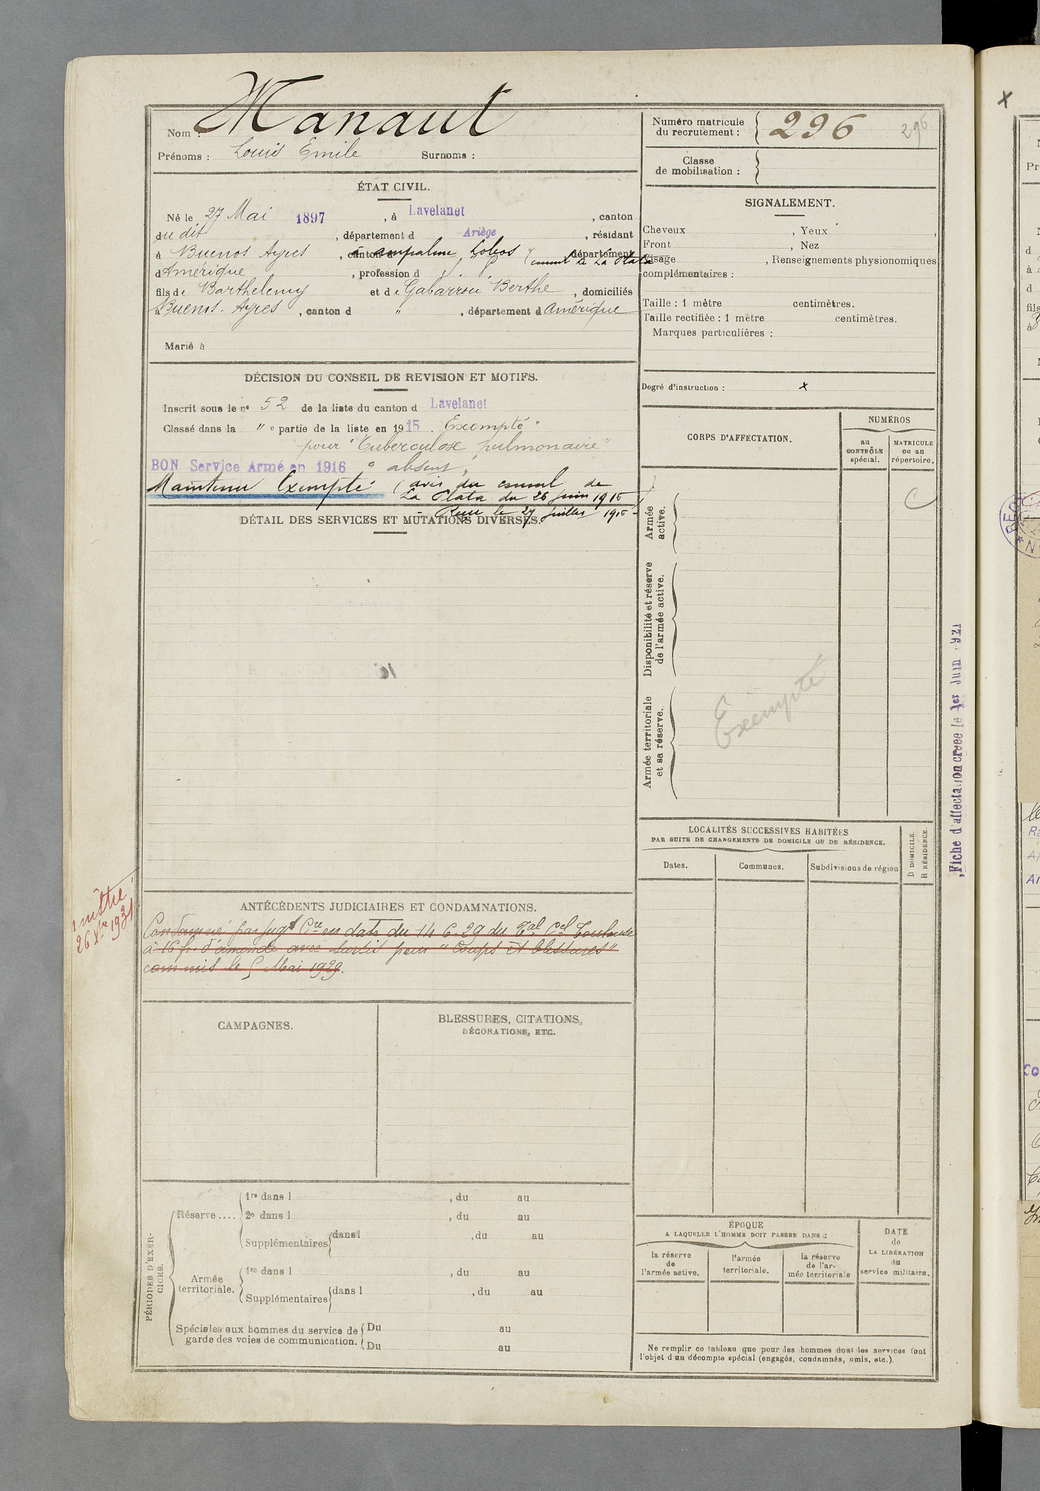 Manaut
Nom :
Prénoms : Louis Emile Surnoms :
Numéro matricule
du recrutement : 296
296
Classe
de mobilisation :
ÉTAT CIVIL.
Né le 27 Mai 1897, à Lavelanet, canton
du dit, département d Ariège, résidant
à Buenos Ayres, canton Lobos département
d'Amérique, profession d
fils de Barthelemy et de Gabarrou Berthe, domiciliés
à Buenos-Ayres, canton d ", département d Amérique
Marié à
SIGNALEMENT.
Cheveux , Yeux ,
Front , Nez
Visage , Renseignements physionomiques
complémentaires :
Taille : 1 mètre centimètres.
Taille rectifiée : 1 mètre centimètres.
Marques particulières :
Degré d'instruction : x
DÉCISION DU CONSEIL DE REVISION ET MOTIFS.
Inscrit sous le nº 52 de la liste du canton d Lavelanet
Classé dans la " e partie de la liste en 1915. Exempté
pour "Tuberculose pulmonaire"
BON Service Armé en 1916 absent,
Maintenu Exempté (avis du consul de
La Plata du 26 juin 1915
- Reçu le 27 juillet 1915 -
DÉTAIL DES SERVICES ET MUTATIONS DIVERSES.
CORPS D'AFFECTATION.
NUMÉROS
au
CONTRÔLE
spécial.
MATRICULE
ou au
répertoire.
Armée
active.
Disponibilité et réserve
de l'armée active.
Armée territoriale
et sa réserve.
Exempté
Fiche d'affectation créée le 1er Juin 1921
LOCALITÉS SUCCESSIVES HABITÉES
PAR SUITE DE CHANGEMENTS DE DOMICILE OU DE RÉSIDENCE.
Dates.
Communes.
Subdivisions de région
D DOMICILE.
R RÉSIDENCE.
ANTÉCÉDENTS JUDICIAIRES ET CONDAMNATIONS.
26 Xbre 1931
Condamné par jugt Cre en date du 14-6-29 du Tal Cel Toulouse
à 16 fr. d'amende avec sursis pour "Coups et blessures"
commis le 5 Mai 1929.
CAMPAGNES.
BLESSURES, CITATIONS,
DÉCORATIONS, ETC.
PÉRIODES D'EXER-
CICES.
Réserve ....
1re dans l , du au
2e dans l , du au
Supplémentaires dans l , du au
Armée
territoriale.
1re dans l , du au
Supplémentaires dans l , du au
Spéciales aux hommes du service de
garde des voies de communication.
Du au
Du au
ÉPOQUE
A LAQUELLE L'HOMME DOIT PASSER DANS :
la réserve
de
l'armée active.
l'armée
territoriale.
la réserve
de l'ar-
mée territoriale
DATE
de
LA LIBÉRATION
du
service militaire.
Ne remplir ce tableau que pour les hommes dont les services font
l'objet d'un décompte spécial (engagés, condamnés, omis, etc.).